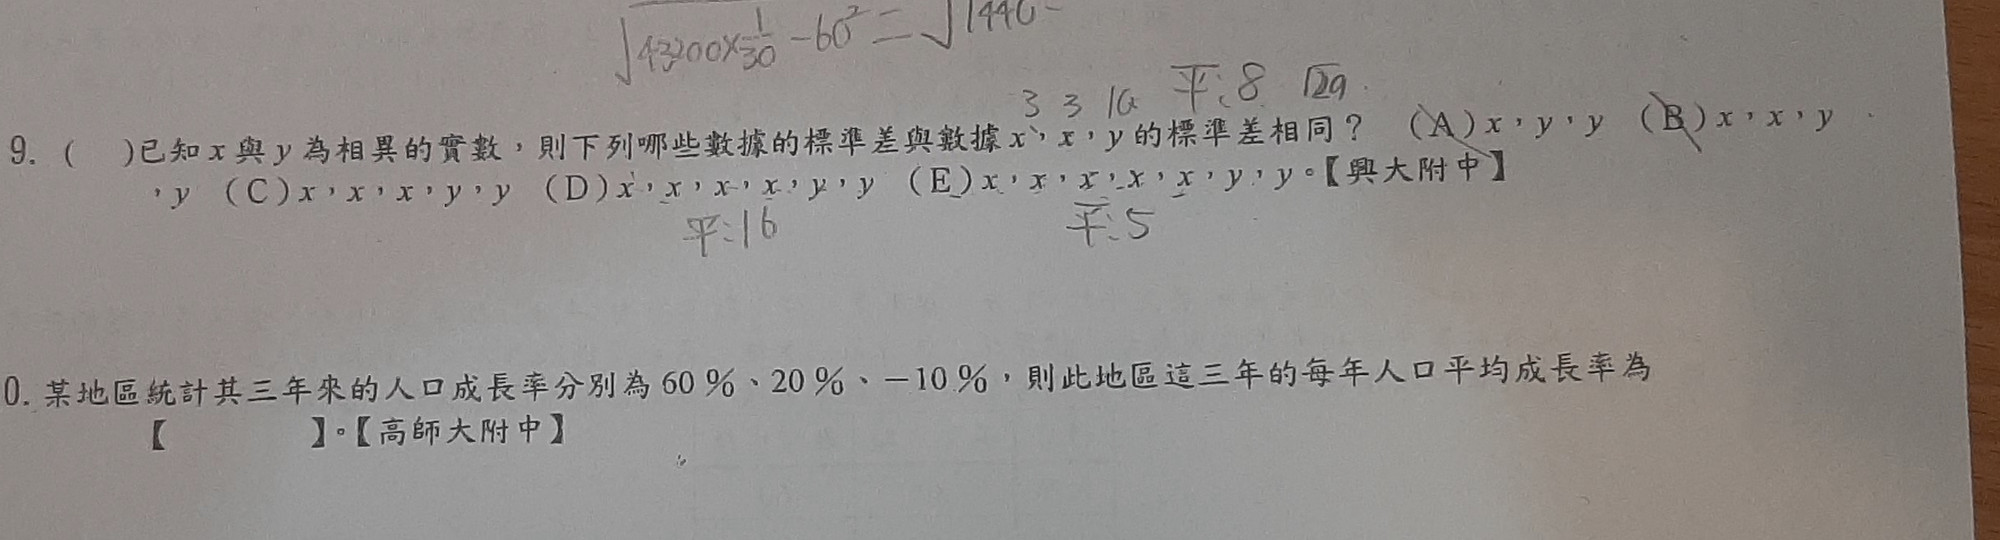 √43200×1/30 - 60² = √1440
3 3 10 平:8 √29
9. ( )已知 x 與 y 為相異的實數，則下列哪些數據的標準差與數據 x，x，y 的標準差相同？ (A) x，y，y (B) x，x，y
，y (C) x，x，x，y，y (D) x，x，x，x，y，y (E) x，x，x，x，x，y，y。【興大附中】
平:16 平:5
0. 某地區統計其三年來的人口成長率分別為 60％、20％、－10％，則此地區這三年的每年人口平均成長率為
【 】。【高師大附中】